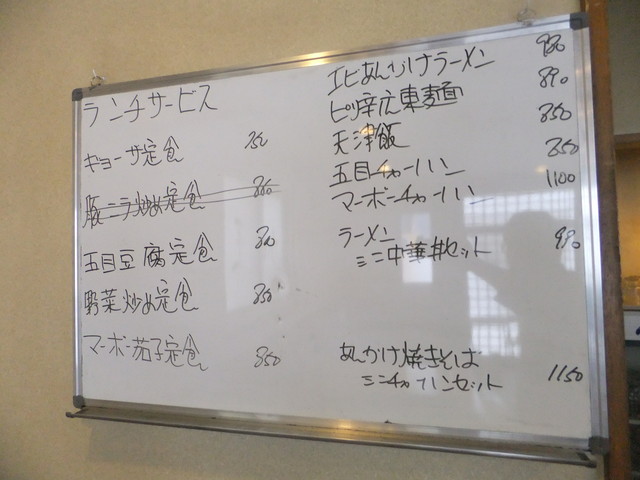 ランチサービス
ギョーザ定食 750
豚ニラ炒め定食 860
五目豆腐定食
野菜炒め定食 850
マーボー茄子定食 850
エビあんかけラーメン
ピリ辛広東麺 890
天津飯 850
五目チャーハン 850
マーボーチャーハン 1100
ラーメン
ミニ中華丼セット 990
あんかけ焼きそば
ミニチャーハンセット 1150